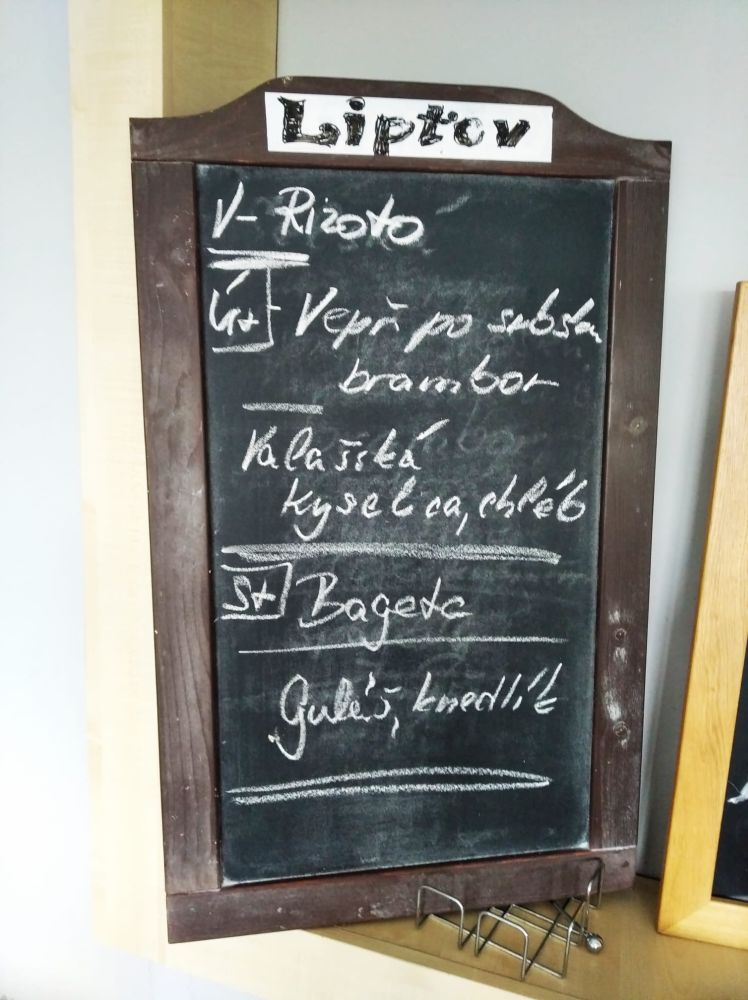 Lipťov
V- Rizoto
Út - Vepř po srbsku
brambor
Valašská
kyselica, chléb
St Bageta
Guláš, knedlík